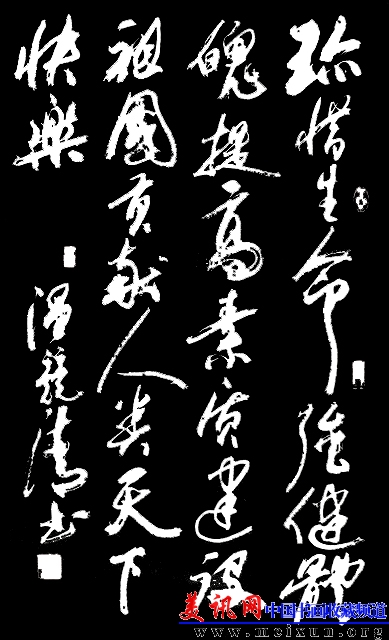 珍惜生命强健體
魄提高素质建设
祖國贡献人类天下
快樂
温競清书
美讯网 中国书画收藏频道
www.meixun.org